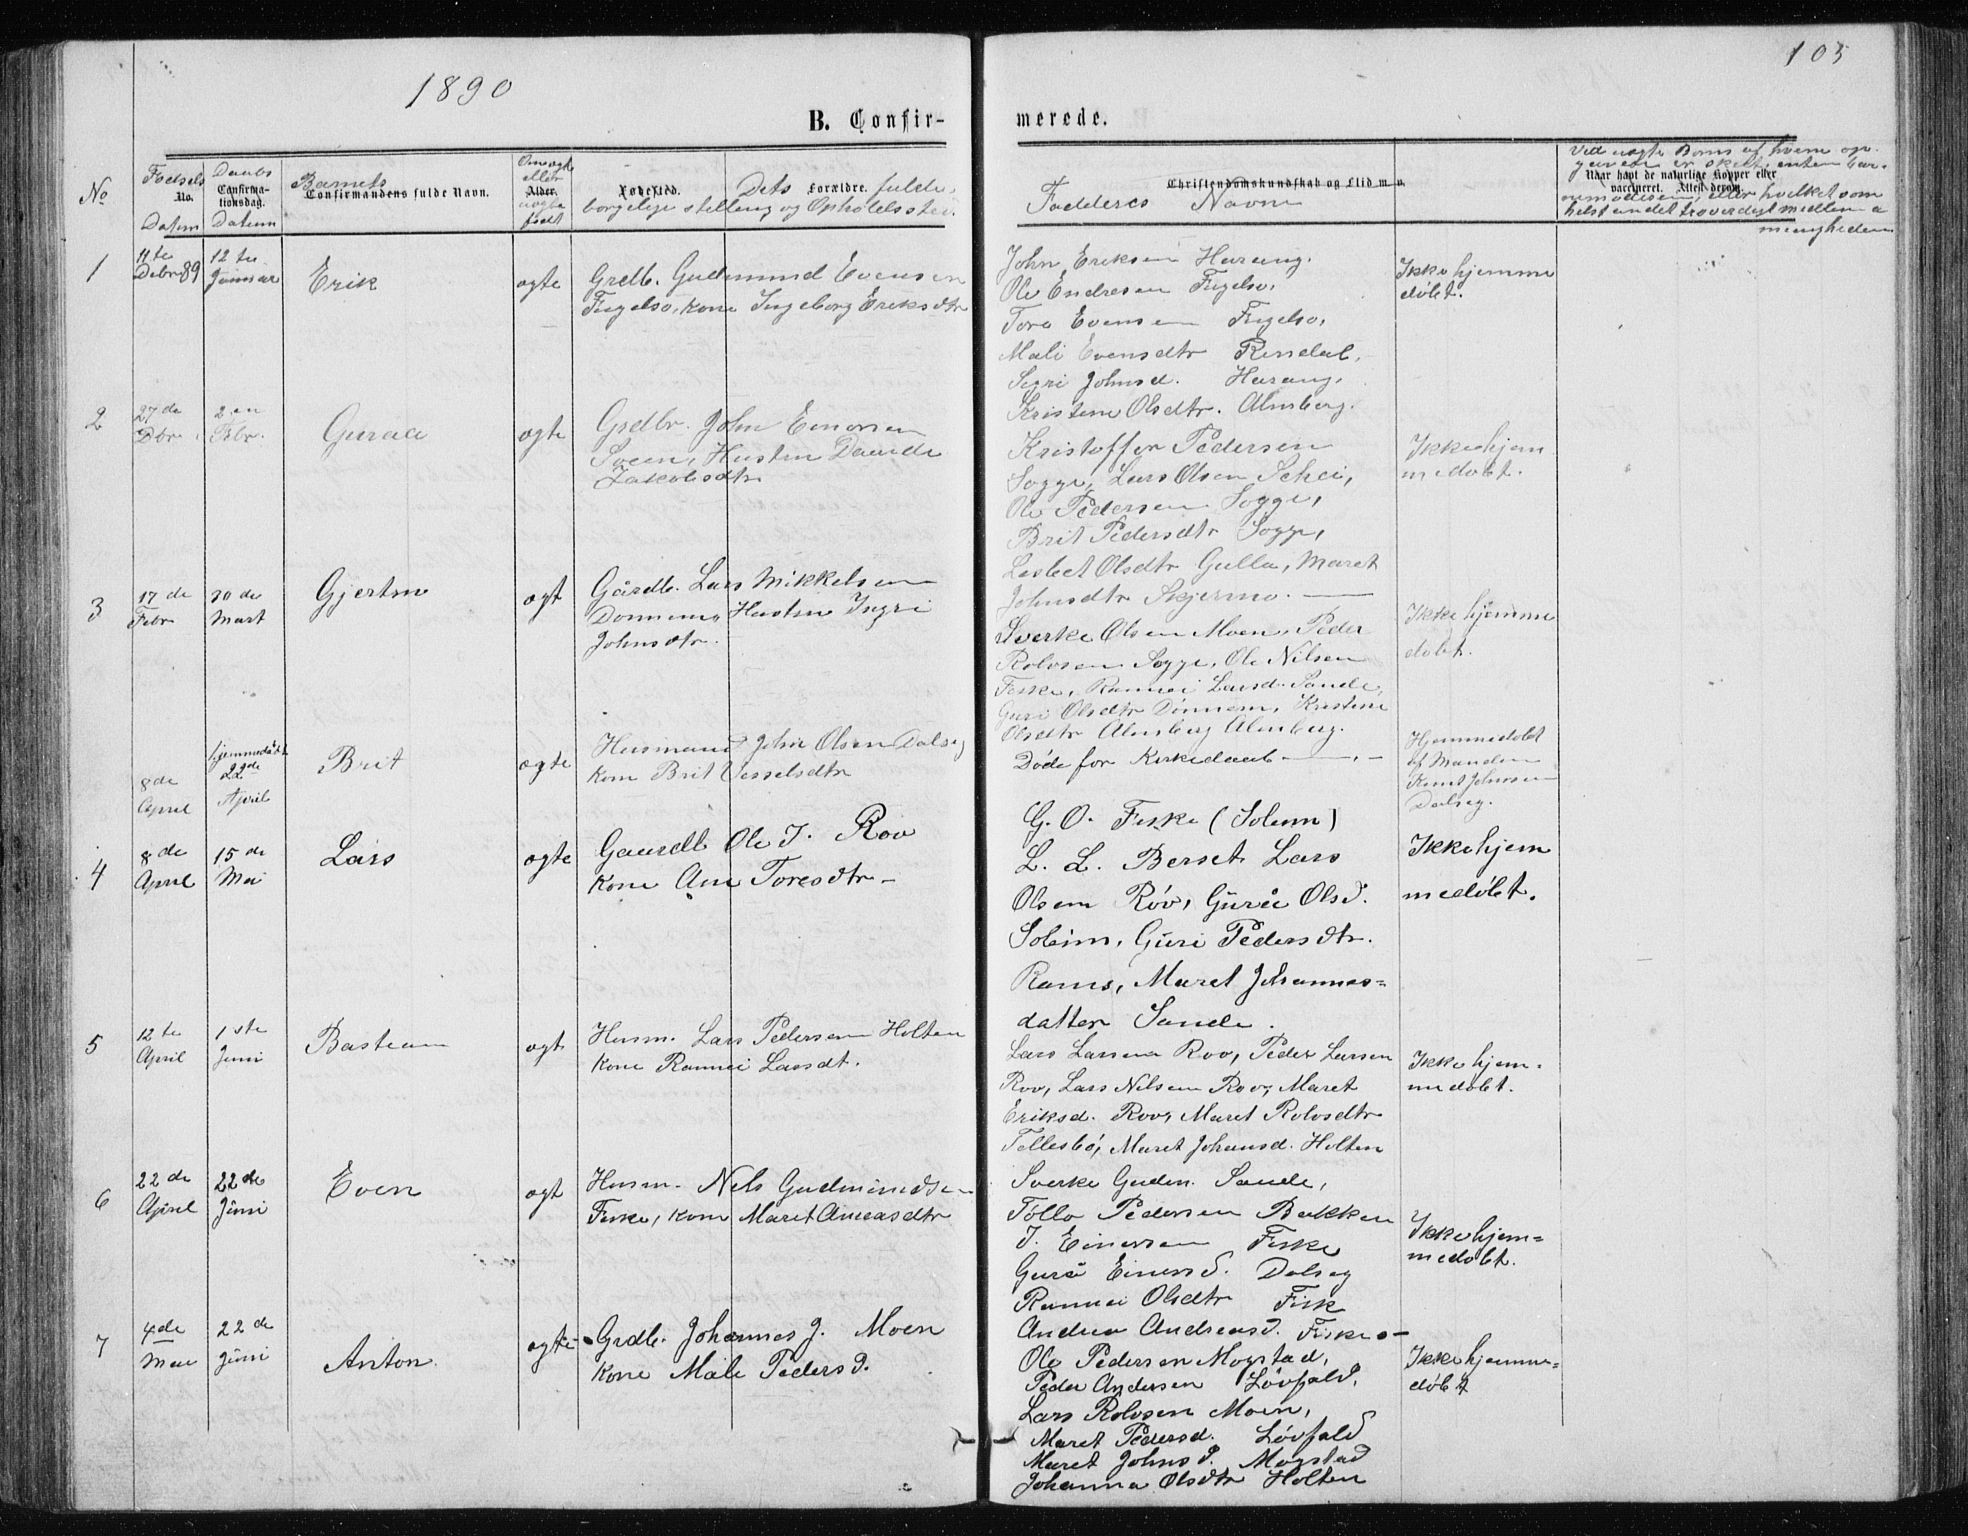 1890
105
B. Confir-
merede.
No
Fødsels
No.
Datum
Daabs
Confirma-
tionsdag.
Datum
Barnets
Confirmandens fulde Navn.
eller
Alder.
uegte
født
Fødested.
Dets
Forældre.
fulde,
borgelige stelling og Opholdssted.
Christendomskundskab og Flid m. v.
Fadderes Navne
Ved uegte Børns af hvem op-
gaven er skelt, enten
Naar havt de naturlige Kopper eller
vaccineret. Attest derom.
eller hvelket som
helst andet troverdegt medlem a
mengheden
1
11te
Debr 89
12te
Januar
Erik
ogte
Grdb. Gudmund Evensen
Fugelso, kone Ingeborg Eriksdtr
John Eriksen Harang.
Ole Endresen Fugelso,
Tore Evensen Fugelso,
Mali Evensdtr Rindal,
Segri Johnsd. Harang,
Kristine Olsdtr. Almberg.
Ikke hjemme
døbt.
2
27de
Dbr.
2en
Febr.
Guraa
ogte
Grdbr. John Einersen
Hustru
Jakobsdtr
Kristoffer Pedersen
Sogge, Lars Olsen Schei,
Ole Pedersen Sogge,
Brit Pedersdtr Sogge,
Lesbet Olsdtr Gulla, Maret
Johnsdtr Skjermo.
Ikke hjem
medøbt.
3
17de
Febr
30de
Mart
Gjertru
ogt
Gårdb. Lars Mikkelsen
Donnem, Hustru Ingri
Johnsdtr.
Sverke Olsen Moen, Peder
Rolvsen Sogge, Ole Nilsen
Feske, Rannei Larsd. Sande,
Guri Olsdtr Dønnem, Kristine
Olsdtr Almberg Almberg.
Ikke hjemme
døbt.
8de
April
hjemmedøbt
22de
April
Brit
ogte
Husmand John Olsen Dalseg
kone Brit Vesselsdtr
Døde før Kirkedaab
Hjemmedøbt
af Manden
Knut Johnsen
Dalseg.
4
8de
April
15de
Mai
Lars
ogte
Gaardb Ole T. Rov
kone Ane Toresdtr
G. O. Feske (Solem)
L. L. Berset, Lars
Olsen Røv, Guråe Olsd.
Soleim, Guri Pedersdtr.
Rams, Maret Johannes=
datter Sande.
Ikke hjem
medøbt.
5
12te
April
1ste
Juni
Bastean
ogt
Husm. Lars Pedersen Holten
kone Rannei Larsdt.
Lars Larsen Rov, Peder Larsen
Rov, Lars Nelsen Rov, Maret
Eriksd. Rov, Maret Rolvsdtr
Tellesbø, Maret Johansd. Holten
Ikke hjem-
medøbt.
6
22de
April
22de
Juni
Even
ogt
Husm. Nels Gudmundsen
Feske, kone Maret Aneasdtr
Sverke Gudm. Sande,
Tøllo Pedersen Bakken
J. Einersen Feske
Gurå Einersd. Dalseg
Rannei Olsdtr Fisk
Andrea Andreasd. Feske
Ikke hjem=
medøbt.
7
4de
Mai
22de
Juni
Anton
ogte
Grdb. Johannes J. Moen
kone Mali Pedersd.
Ole Pedersen Mogstad,
Peder Andersen Løvfald,
Lars Rolvsen Moen,
Maret Pedersd. Løvfald
Maret Johnsd. Mogstad
Johanna Olsdtr Holten
Ikke hjemme=
døbt